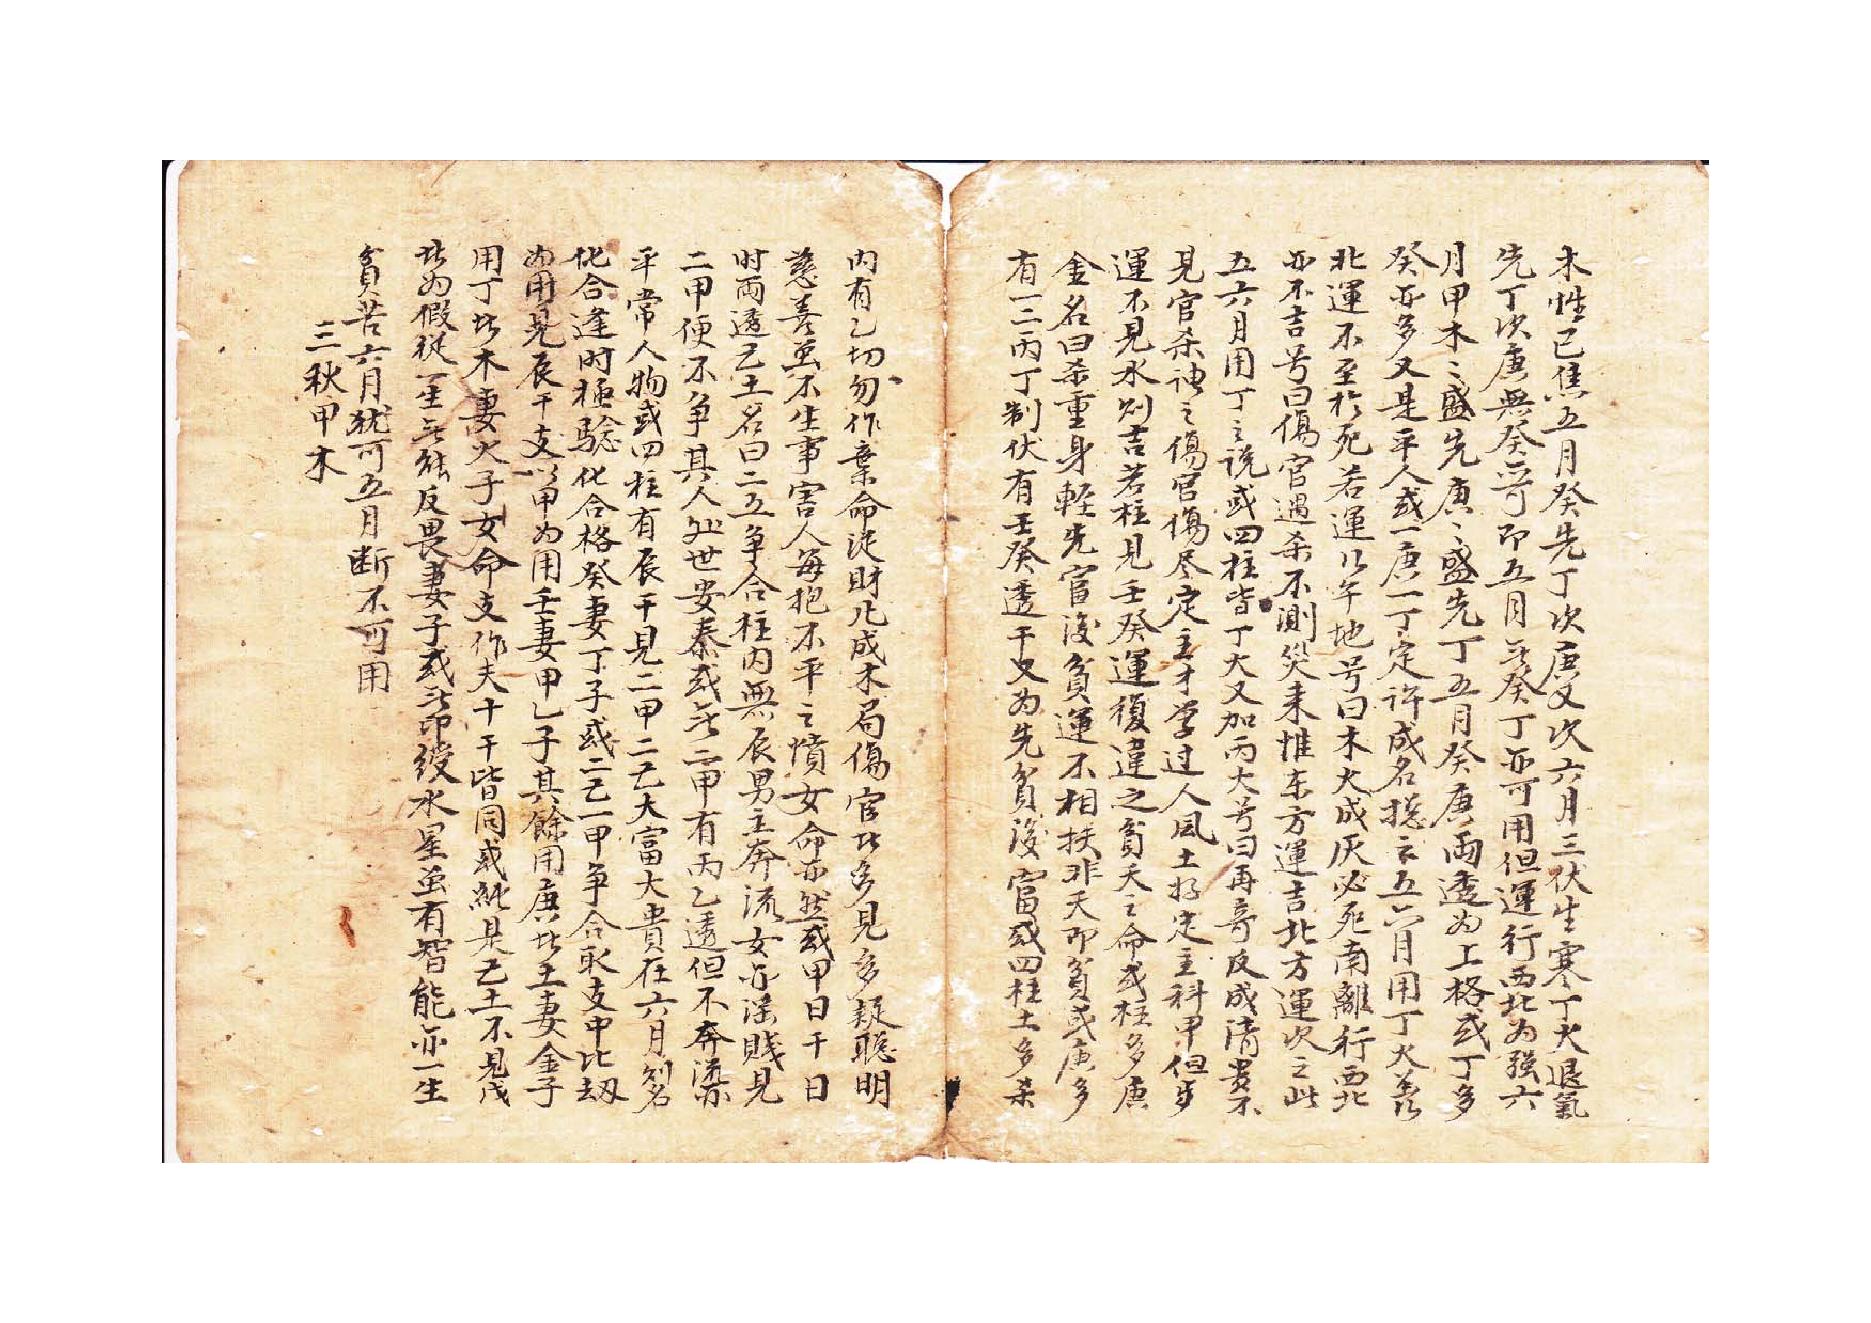 木性已焦五月癸先丁次庚又次六月三伏生寒丁火退氣
先丁次庚無癸亦可即五月无癸丁亦可用但運行西北为强六
月甲木〻盛先庚〻盛先丁五月癸庚両透为上格或丁多
癸亦多又是平人或一庚一丁定许成名揔云五六月用丁火羙
北運不至於死若運行午地号曰木火成灰必死南離行西北
亦不吉号曰傷官遇杀不測災来惟东方運吉北方運次之此
五六月用丁之说或四柱皆丁火又加丙火号曰再奇反成清贵不
見官杀祂之傷官傷尽定主才学过人風土好定主科甲但歩
運不見水则吉若柱見壬癸運復違之貧夭之命或柱多庚
金名曰杀重身軽先富后貧運不相扶非夭即貧或庚多
有一二丙丁制伏有壬癸透干又为先貧後富或四柱土多杀
内有乙切勿作棄命従財凡成木局傷官此多見多疑聡明
慈善並不生事害人每抱不平之憤女命亦然或甲日干日
时両透己土名曰二五争合柱内無辰男主奔流女亦滛賎見
二甲便不争其人处世安泰或无二甲有丙乙透但不奔流亦
平常人物或四柱有辰干見二甲二己大富大贵在六月则名
化合逢时極騐化合格癸妻丁子或二己一甲争合取支中比刼
为用見辰干支以甲为用壬妻甲乙子其餘用庚此土妻金子
用丁此木妻火子女命支作夫十干皆同或純是己土不見戊
此为假従一生无能反畏妻子或无印綬水星並有智能亦一生
貧苦六月犹可五月断不可用
三秋甲木